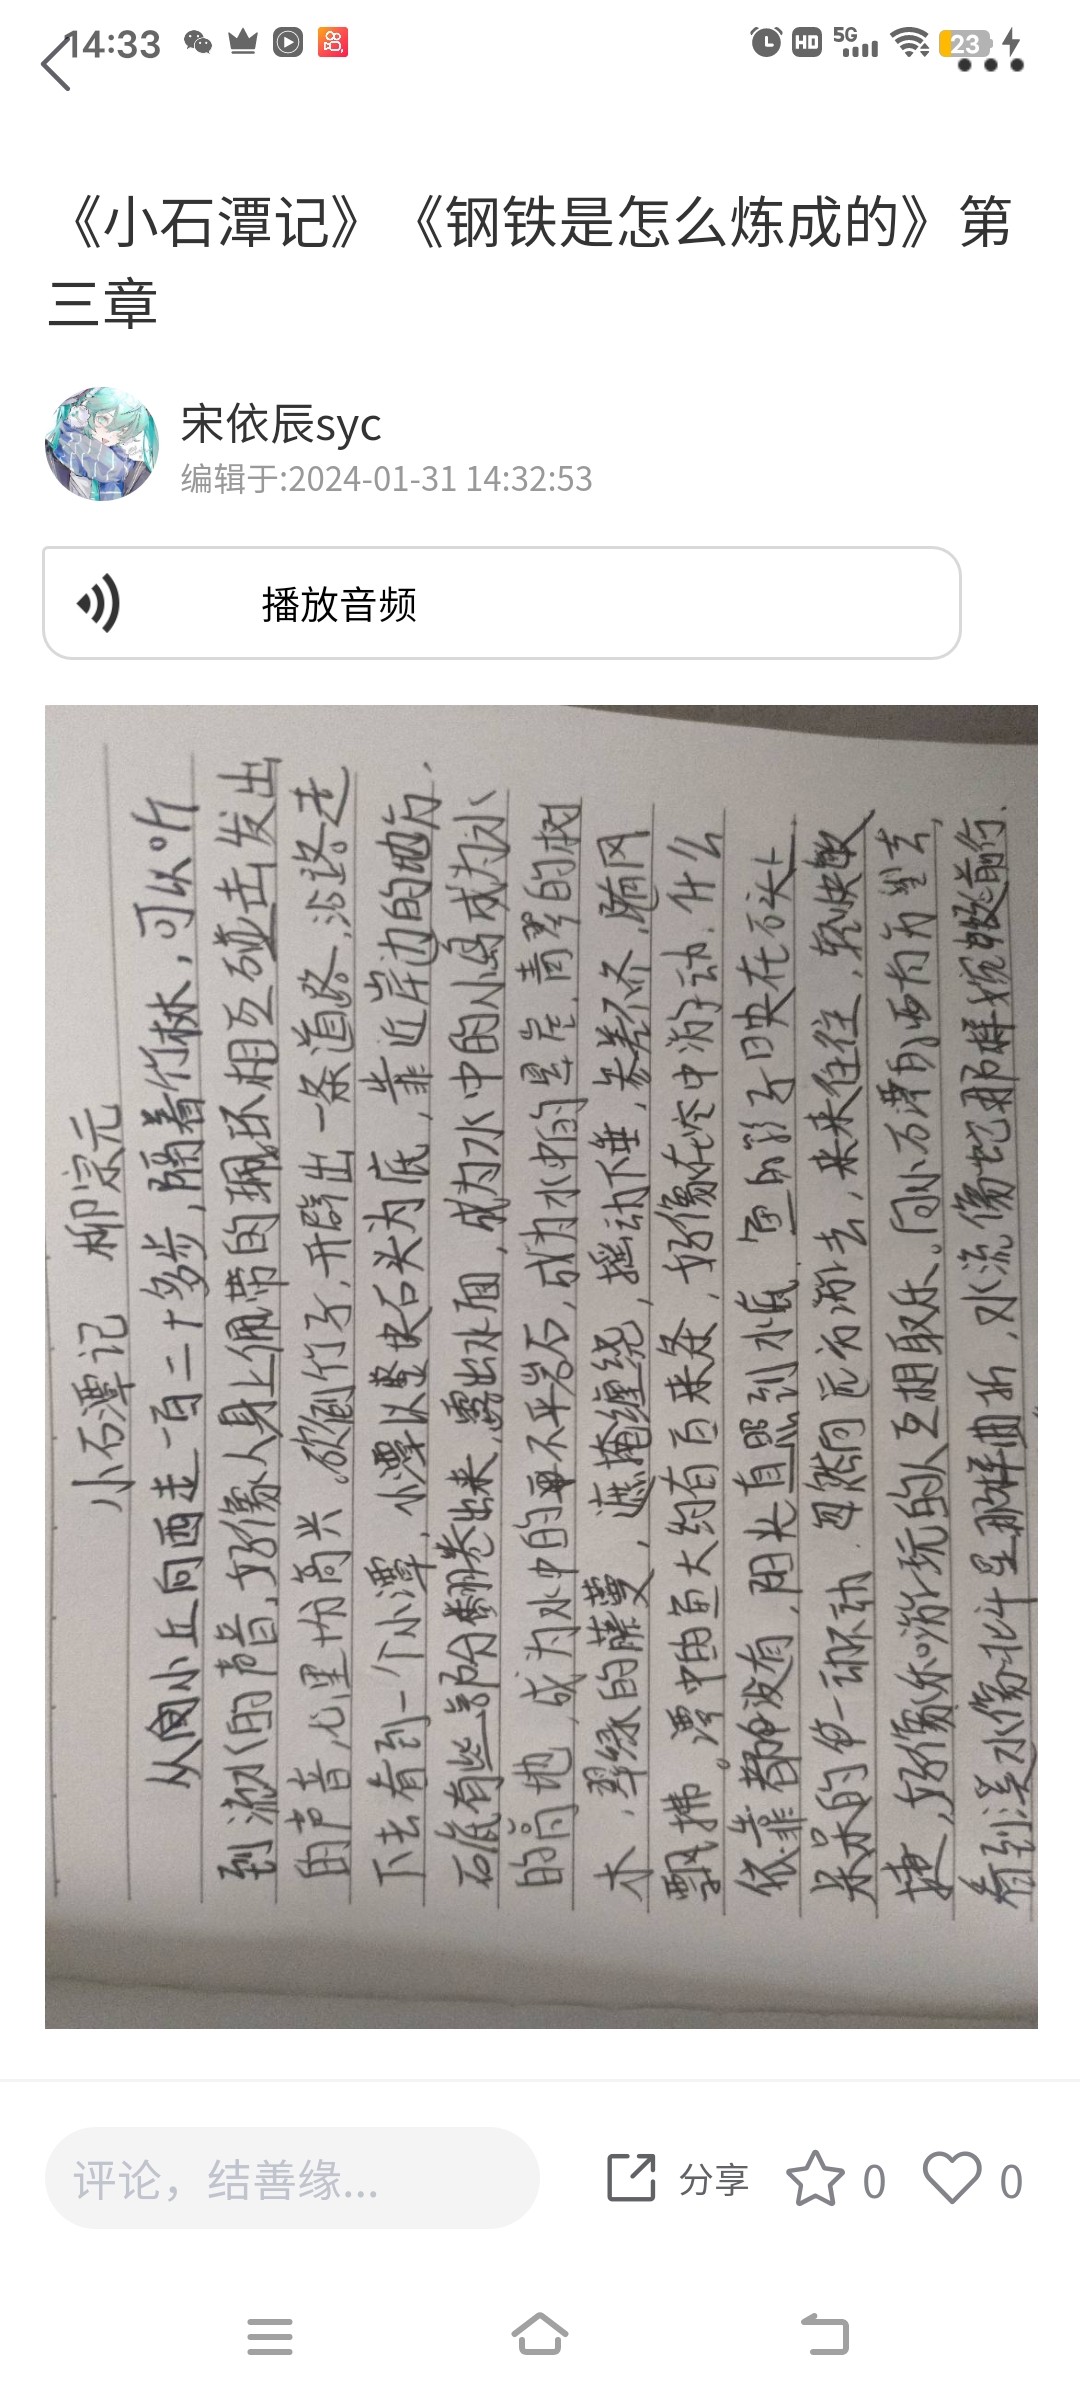 14:33
HD 5G 23
《小石潭记》《钢铁是怎么炼成的》第
三章
宋依辰syc
编辑于:2024-01-31 14:32:53
播放音频
小石潭记 柳宗元
从小丘向西走一百二十多步,隔着竹林,可以听
到流水的声音,好像人身上佩带的珮环相互碰击发出
的声音,心里十分高兴。砍倒竹子,开辟出一条道路,沿路走
下去看到一个小潭,小潭以整块石头为底,靠近岸边的地方.
石底有些部分翻卷出来,露出水面,成为水中的小岛成为水
的高地,成为水中的不平岩石,成为水中的悬崖.青翠的树
木,翠绿的藤蔓,遮掩缠绕,摇动下垂,参差不齐,随风
飘拂。潭中鱼大约有百来条,好像在空中游动.什么
依靠都没有,阳光直照到水底.鱼的影子映在石头上
呆呆的一动不动.忽然向远方游去,来来往往,轻快敏
捷,好像你游玩的人互相取乐。向小石潭的西南方望去,
看到溪水像北斗星那样曲折,水流像蛇那样蜿蜒前行.
评论，结善缘...
分享 0 0